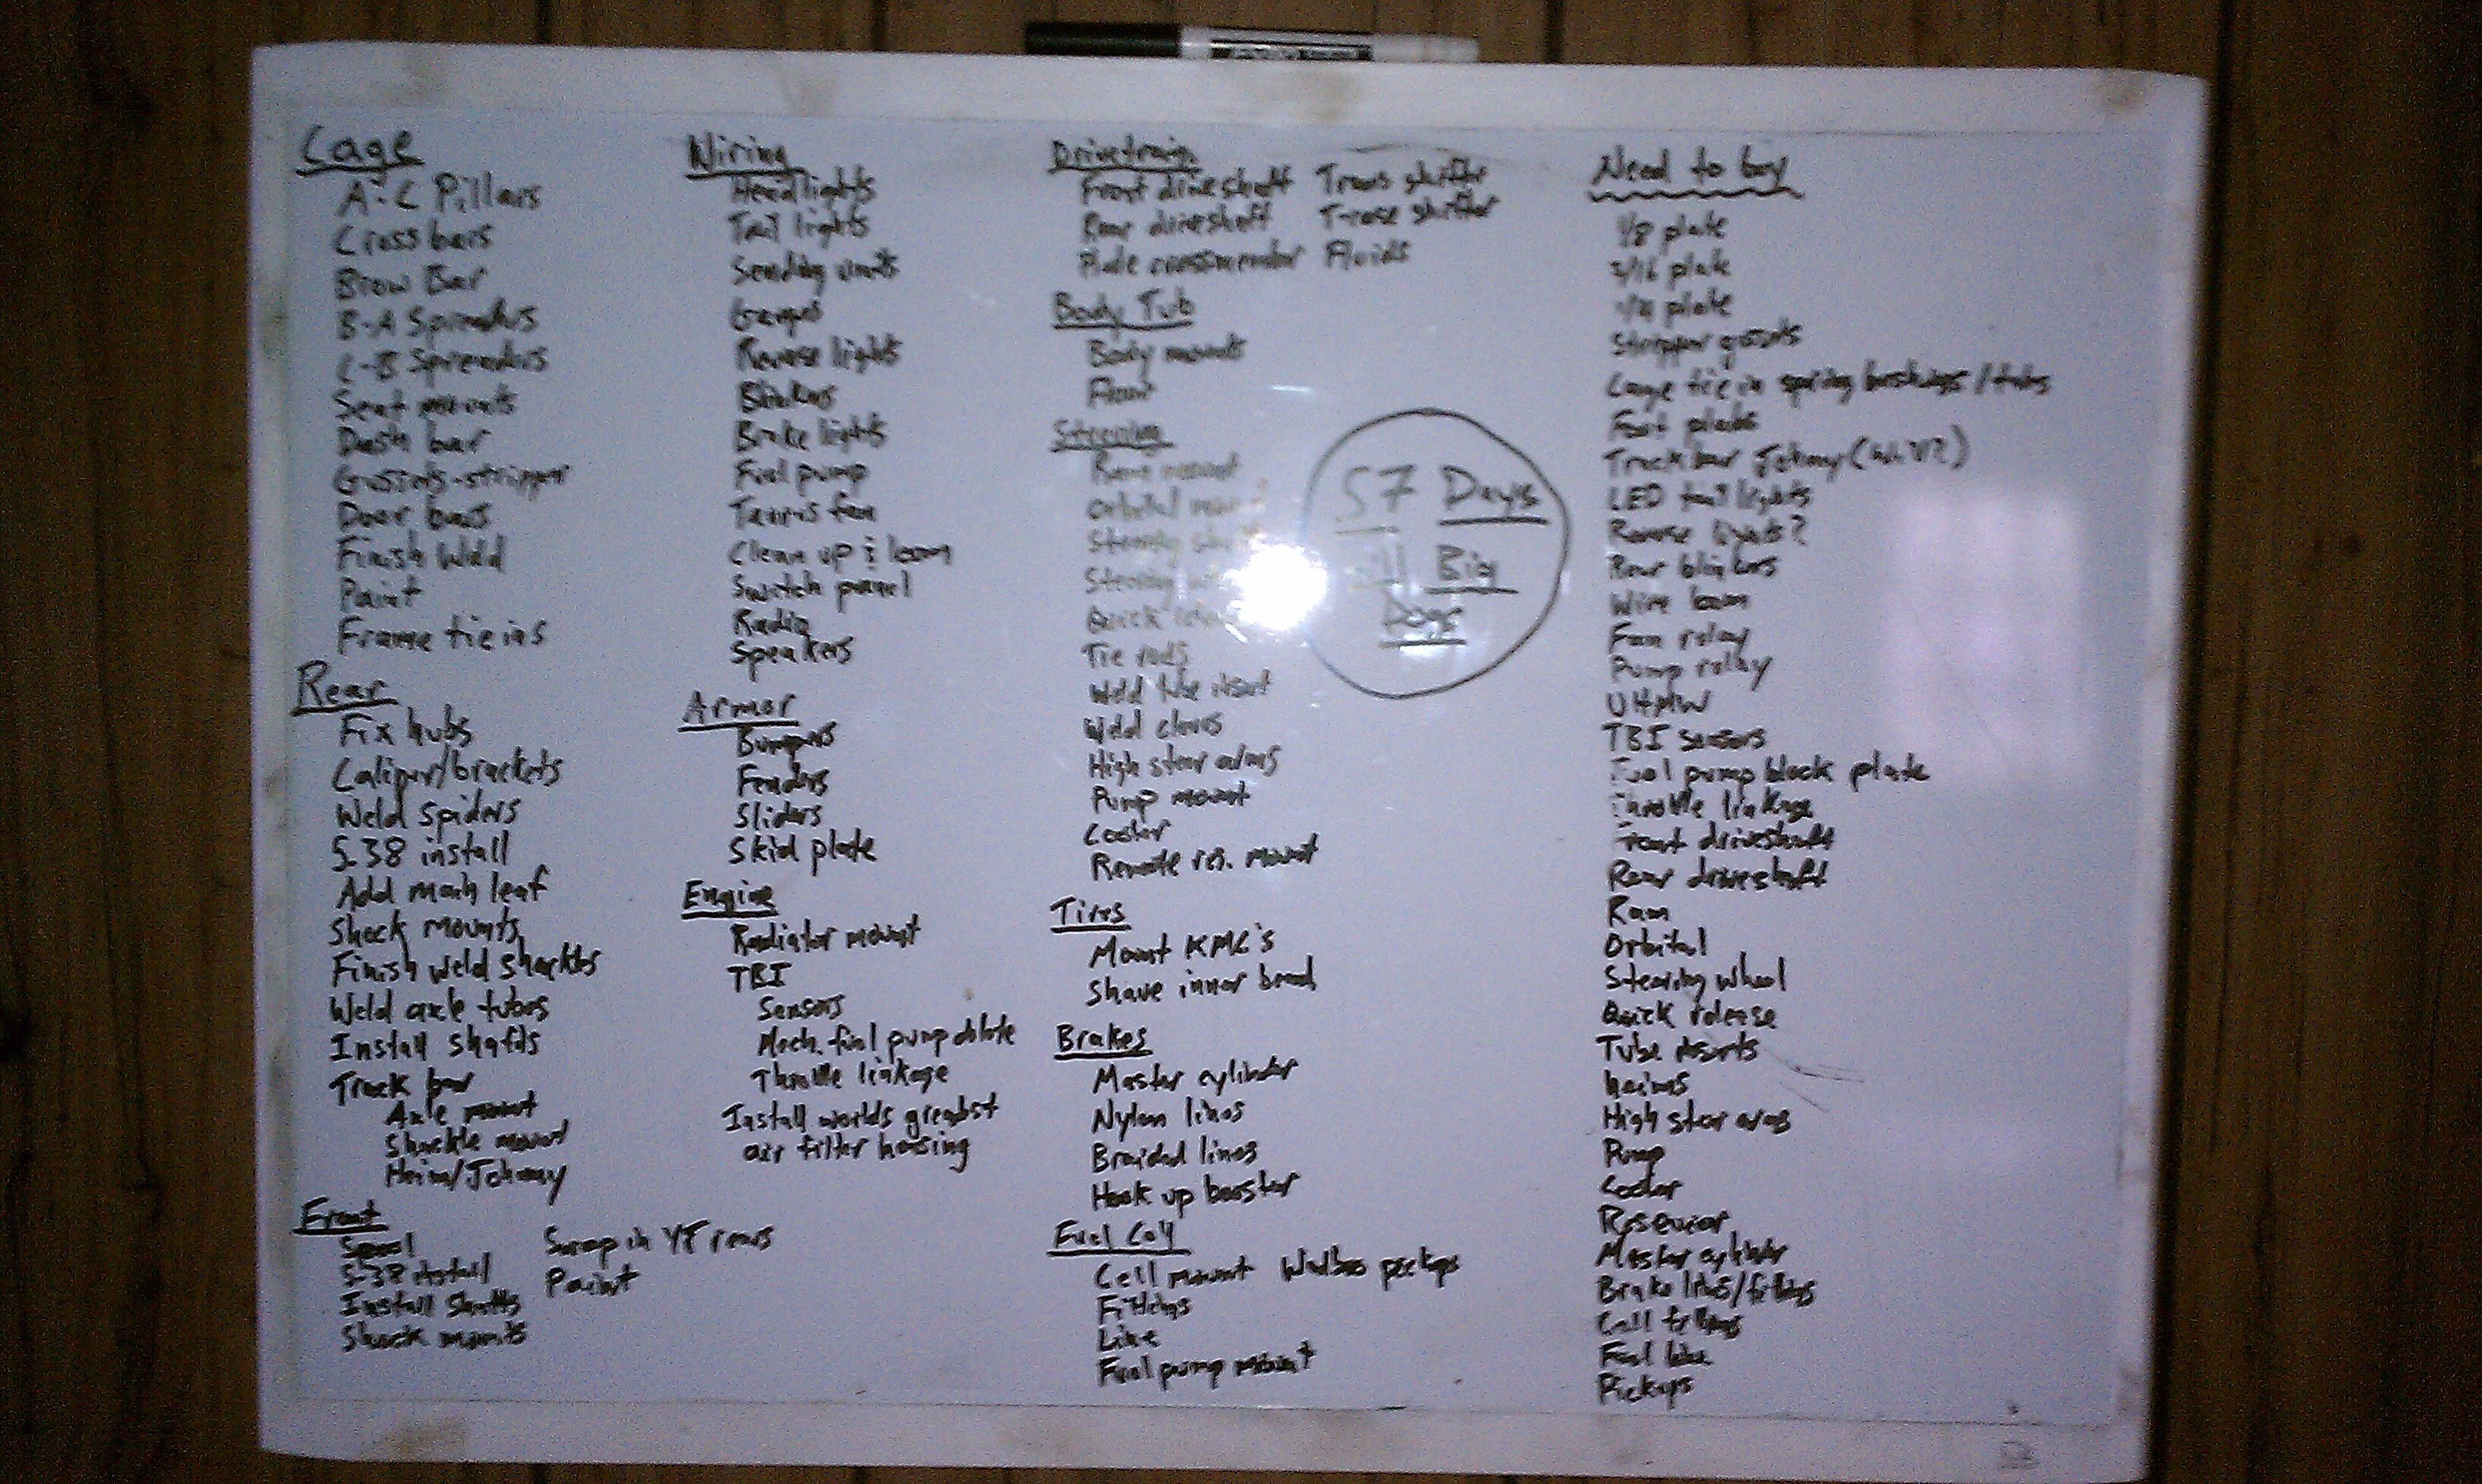 Cage
A-C Pillars
Cross bars
Brow Bar
B-A Spreaders
C-B Spreaders
Seat mounts
Dash bar
Gussets-stripper
Door bars
Finish Weld
Paint
Frame tie ins
Rear
Fix hubs
Caliper/brackets
Weld spiders
5.38 install
Add main leaf
Shock mounts
Finish weld shackles
Weld axle tubes
Install shafts
Track bar
Axle mount
Shackle mount
Heim/Johnny
Front
Spool
5.38 install
Install shafts
Shock mounts
Swap in YJ rears
Paint
Wiring
Headlights
Tail lights
Sending units
Gauges
Reverse lights
Blinkers
Brake lights
Fuel pump
Taurus fan
Clean up & loom
Switch panel
Radio
Speakers
Armor
Bumpers
Fenders
Sliders
Skid plate
Engine
Radiator mount
TBI
Sensors
Mech. fuel pump delete
Throttle linkage
Install worlds greatest
air filter housing
Drivetrain
Front driveshaft
Rear driveshaft
Plate crossmember
Trans shifter
T-case shifter
Fluids
Body Tub
Body mounts
Floor
Steering
Ram mount
Orbital mount
Steering
Steering
Quick
Tie rods
Weld tube insert
Weld clevis
High steer arms
Pump mount
Cooler
Remote res. mount
Tires
Mount KMC's
Shave inner bead
Brakes
Master cylinder
Nylon lines
Braided lines
Hook up booster
Fuel Cell
Cell mount
Fittings
Line
Fuel pump mount
Walbro pickups
57 Days
till Big
Dogs
Need to buy
1/8 plate
3/16 plate
1/4 plate
Stripper gussets
Cage tie in spring bushings/tubes
Foot plates
Track bar Johnny
LED tail lights
Reverse lights?
Rear blinkers
Wire loom
Fan relay
Pump relay
UHMW
TBI sensors
Fuel pump block plate
Throttle linkage
Front driveshaft
Rear driveshaft
Ram
Orbital
Steering wheel
Quick release
Tube inserts
heims
High steer arms
Pump
Cooler
Resevior
Master cylinder
Brake lines/fittings
Cell fittings
Fuel line
Pickups